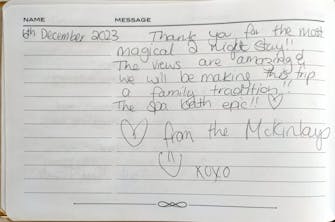 NAME MESSAGE
6th December 2023 Thank you for the most
magical 2 night stay!!
The views are amazing &
we will be making this trip
a family tradition!!
The spa bath epic!! ♡
♡ from the McKinlays
xoxo